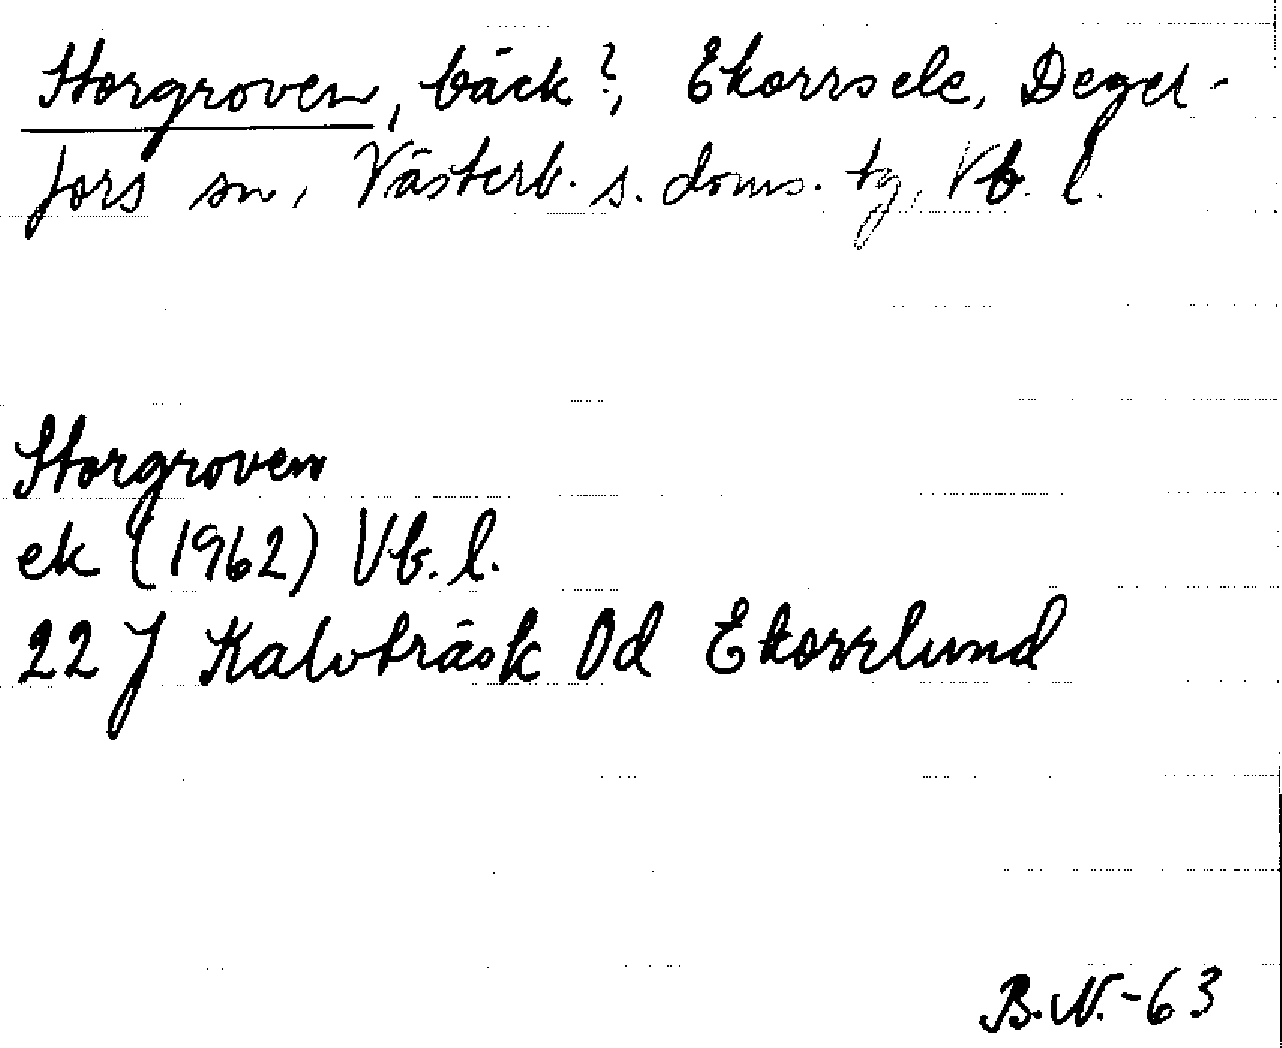 Storgroven, bäck?, Ekorrsele, Degel-
fors sn, Västerb. s. doms. tg, Vb. l.
Storgroven
ek (1962) Vb. l.
22 J Kalvträsk 0d Ekorrlund
B.N.-63